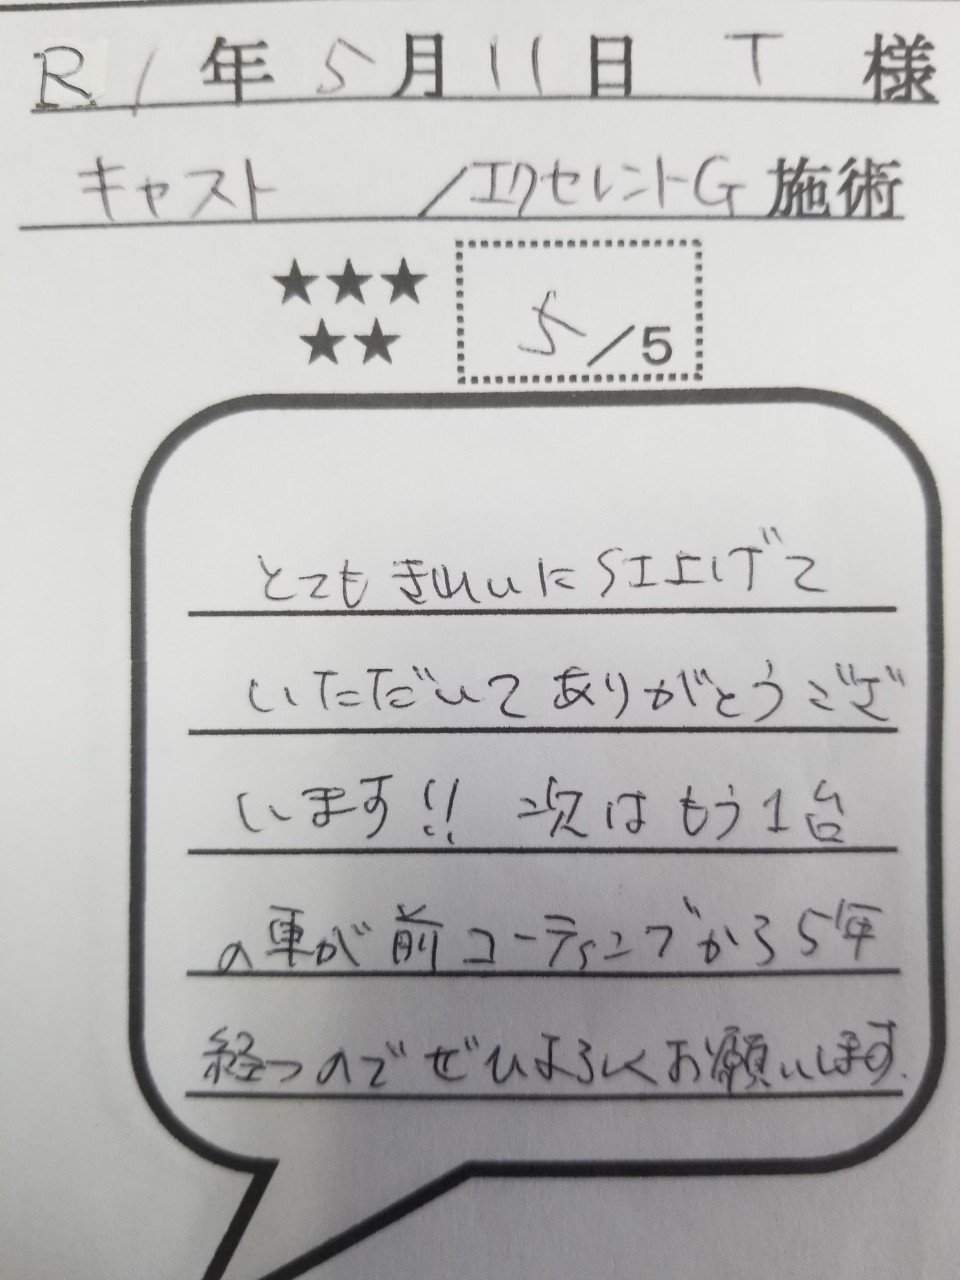 R1年5月11日 T 様
キャスト /エクセレントG 施術
★★★
★★
5/5
とてもきれいに仕上げて
いただいてありがとうござ
います!! 次はもう1台
の車が前コーティングから5年
経つのでぜひよろしくお願いします.